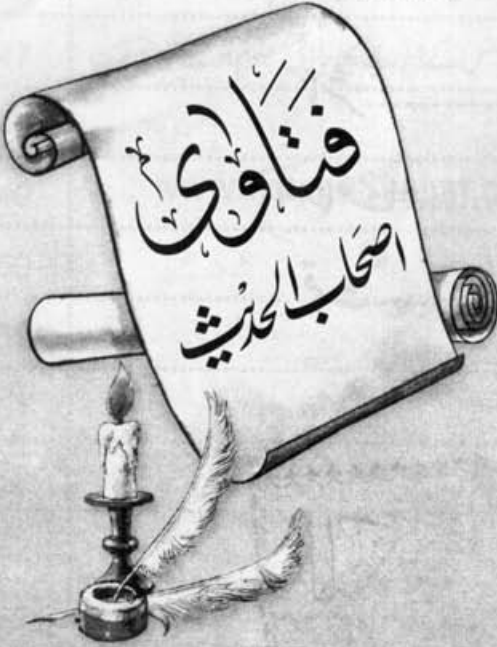 فتاویٰ
اصحاب الحدیث